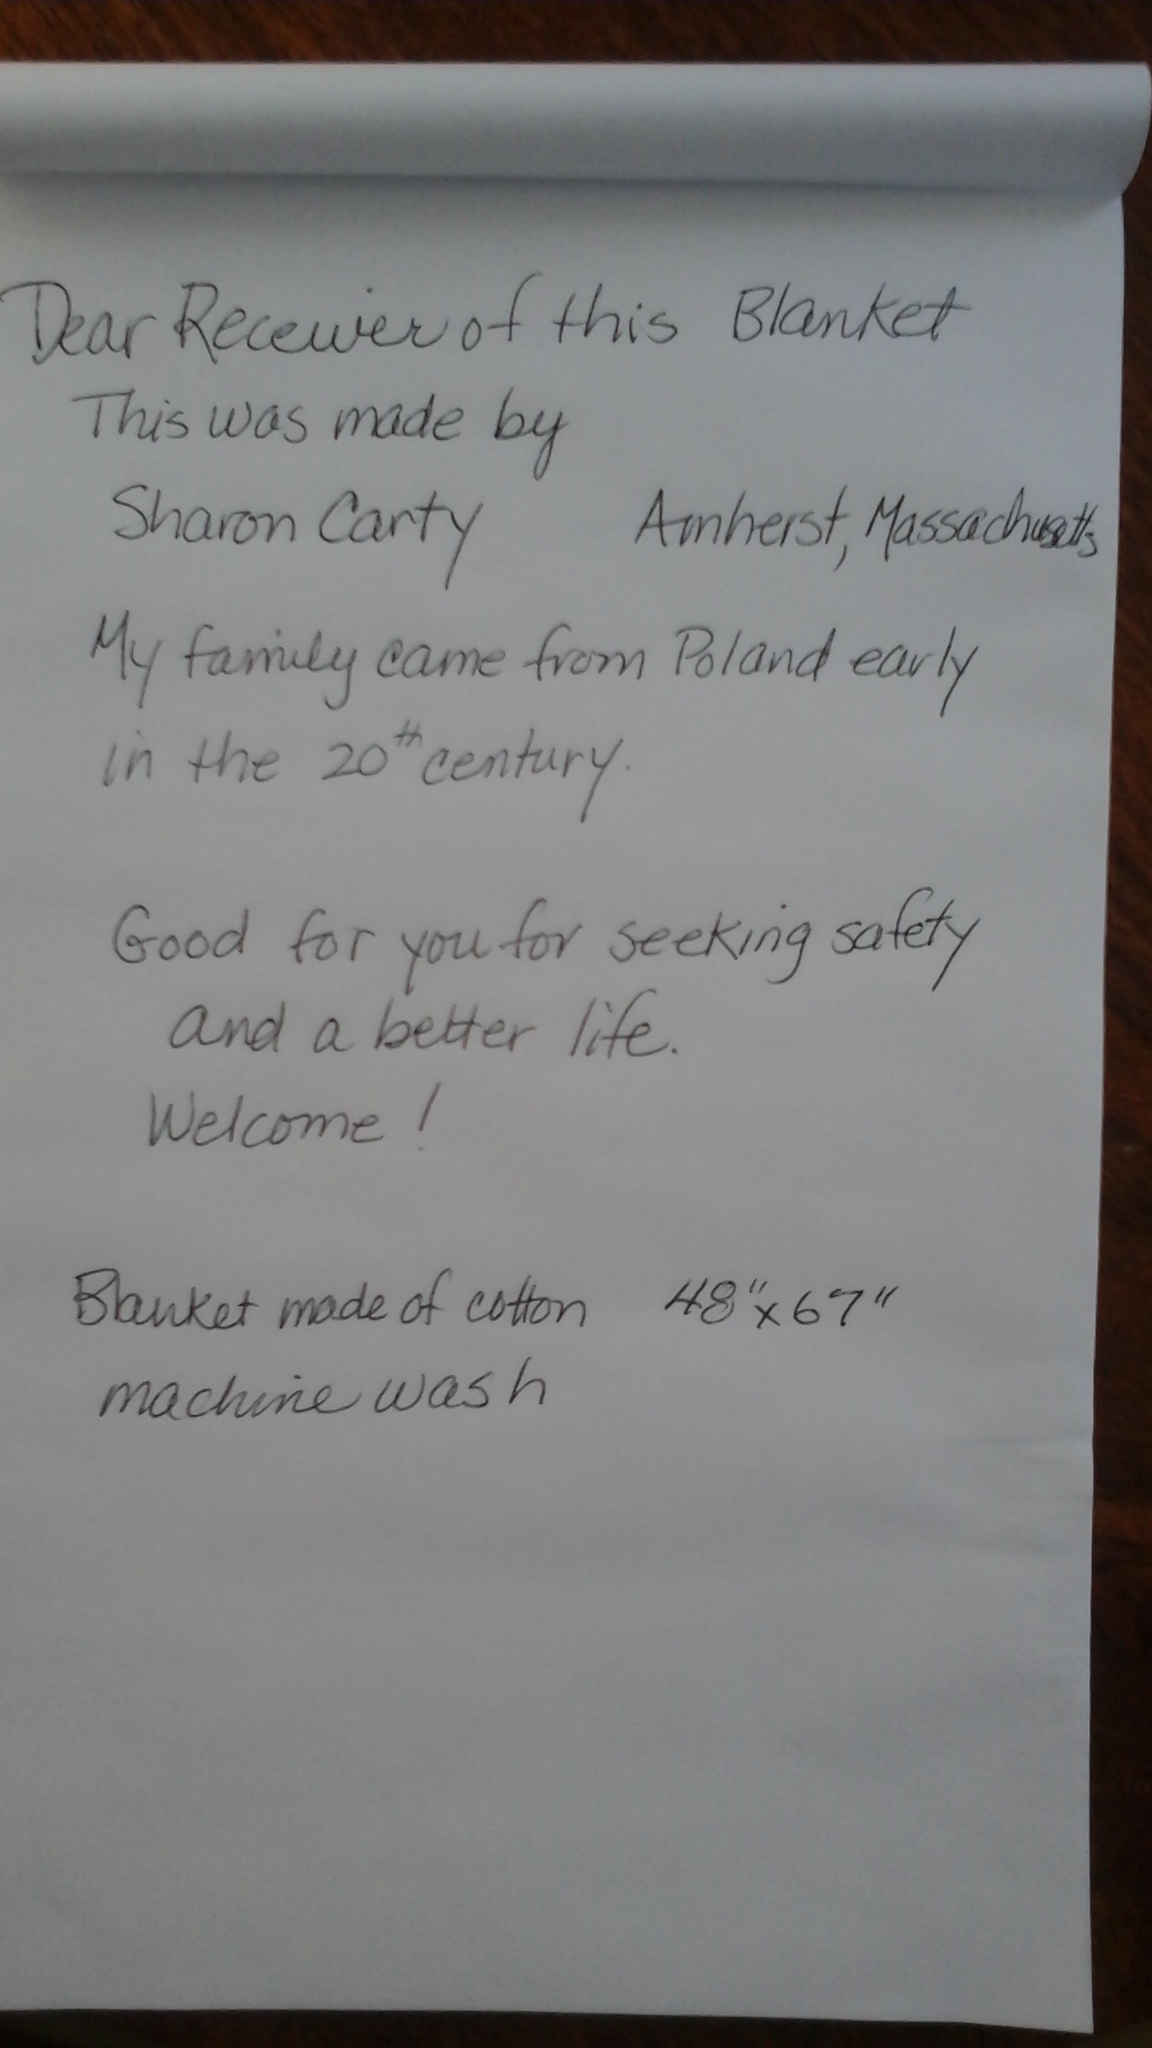 Dear Receiver of this Blanket
This was made by
Sharon Carty Amherst, Massachusetts
My family came from Poland early
in the 20th century.
Good for you for seeking safety
and a better life.
Welcome!
Blanket made of cotton 48" x 67"
machine wash